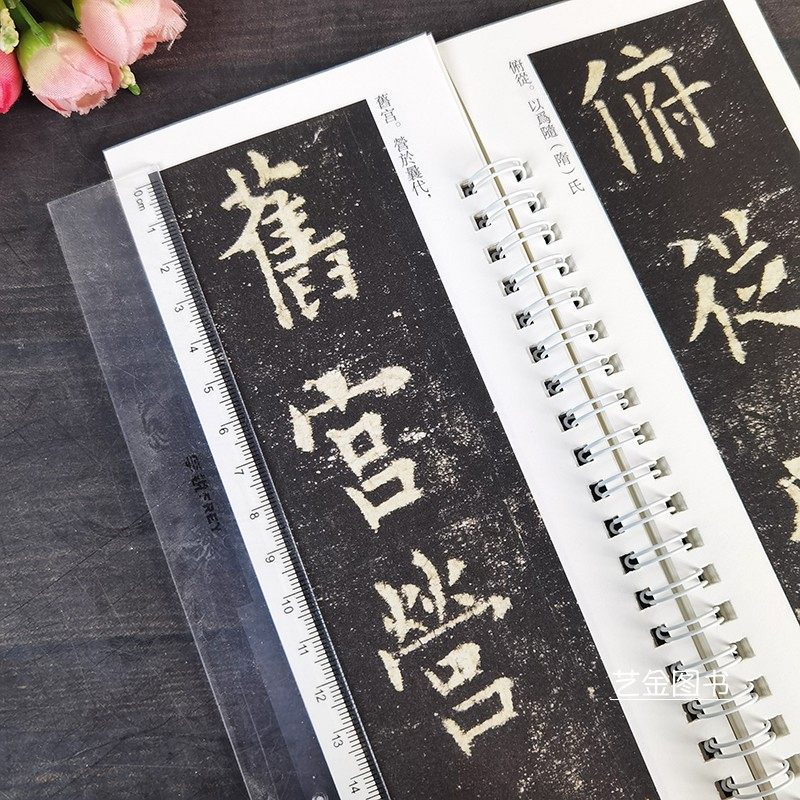 舊
宮
營
舊宮。營於曩代，
俯
從
俯從。以爲隨（隋）氏
0 cm 1 2 3 4 5 6 7 8 9 10 11 12 13 14
艺金图书